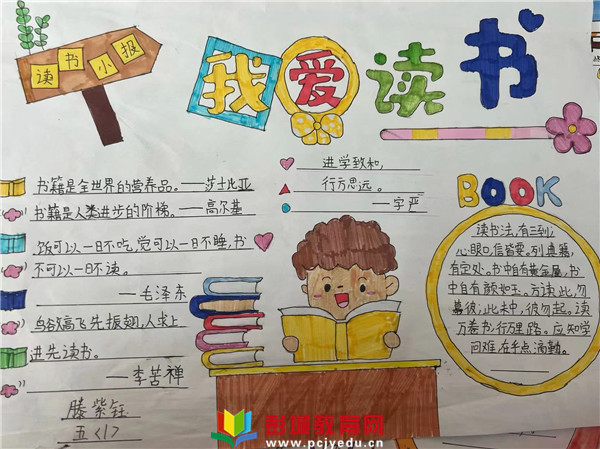 读书小报
我爱读书
书籍是全世界的营养品。——莎士比亚
书籍是人类进步的阶梯。——高尔基
饭可以一日不吃,觉可以一日不睡,书
不可以一日不读。
——毛泽东
鸟欲高飞先振翅,人求上
进先读书。
——李苦禅
滕紫钰
五<1>
进学致和,
行方思远。
—字严
BOOK
读书法,有三到;
心眼口,信皆要。列典籍,
有定处。书中自有黄金属,书
中自有颜如玉。方读此,勿
慕彼;此未中,彼勿起。读
万卷书行万里路。应知学
问难,在乎点滴勤。
影城教育网
www.pcjyedu.cn